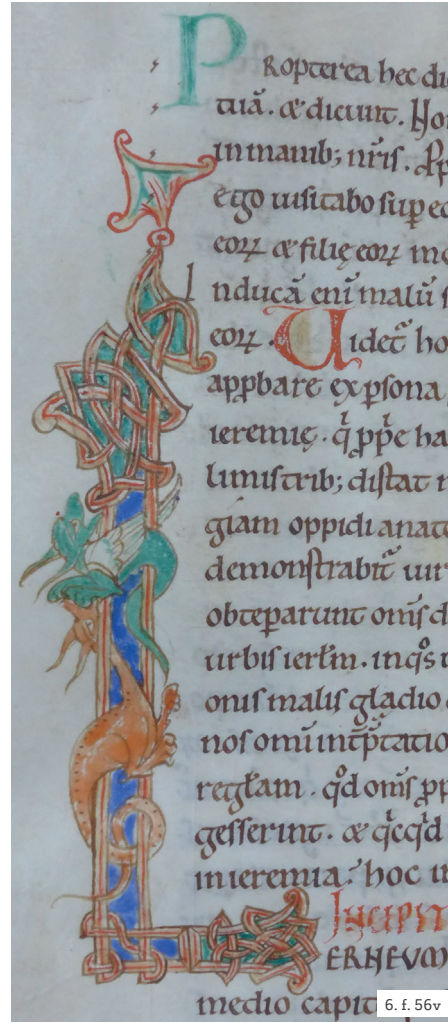 Propterea hec di
tiā. & dicunt. Ho
in manib; nrīs. Pp
ego uisitabo sup eo
eoꝝ & filię eoꝝ mo
Inducā enī malū s
eoꝝ. Videt̄ ho
appbare ex psona
ieremię. q̇ ppt̄e ha
lumistrib; distat
giam oppidi anato
demonstrabit̄ uir
obteparunt om̄s d
urbis ierl̄m. in
onis malis gladio
nos om̄i int̄ptatio
regłam. qd̊ om̄s pp
gesserint. & qcqd
in ieremia: hoc in
INCIPIT
ERHEVM
medio capit
6. f. 56v